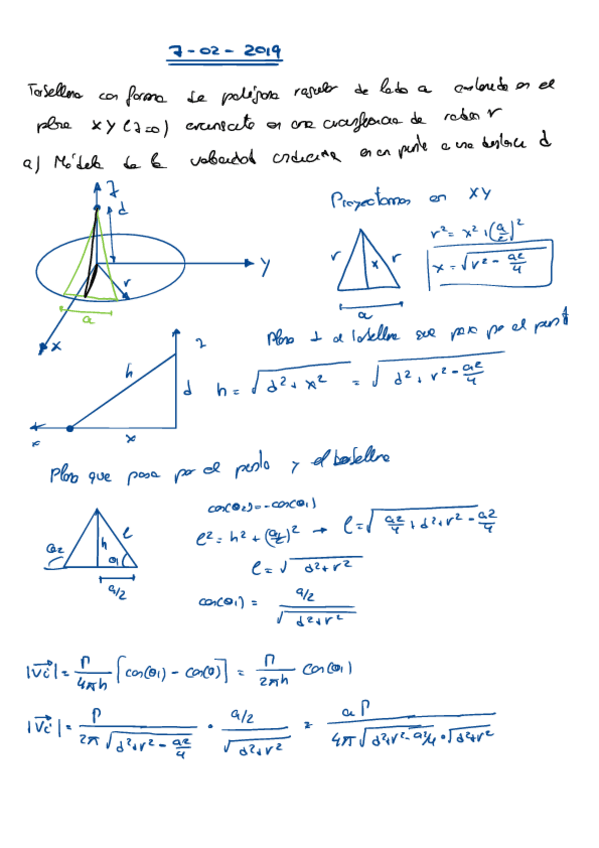 7-02-2019
Torbellino con forma de polígono regular de lado a contenido en el
plano XY (z=0) circunscrito en una circunferencia de radio r
a) Módulo de la velocidad inducida en un punto a una distancia d
z
d
y
r
a
x
Proyectamos en XY
r
x
r
a
r² = x² + (a/2)²
x = √(r² - a²/4)
Plano ⊥ al torbellino que pasa por el punto
z
h
d
x
x
h = √(d² + x²) = √(d² + r² - a²/4)
Plano que pasa por el punto y el torbellino
θ2
h
l
θ1
a/2
cos(θ2) = -cos(θ1)
l² = h² + (a/2)² → l = √(a²/4 + d² + r² - a²/4)
l = √(d² + r²)
cos(θ1) = (a/2)/√(d² + r²)
|Vi| = Γ/(4πh) [cos(θ1) - cos(θ)] = Γ/(2πh) cos(θ1)
|Vi| = Γ/(2π√(d² + r² - a²/4)) · (a/2)/√(d² + r²) = aΓ/(4π√(d² + r² - a²/4) · √(d² + r²))